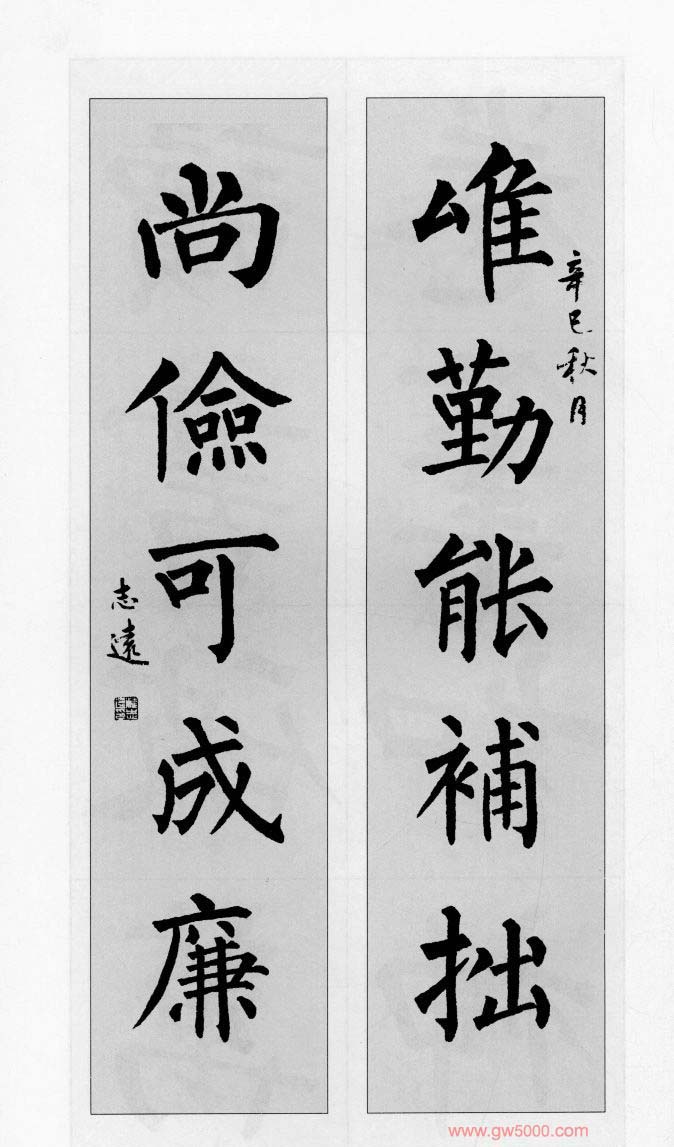 唯勤能補拙
辛巳秋月
尚儉可成廉
志遠
www.gw5000.com